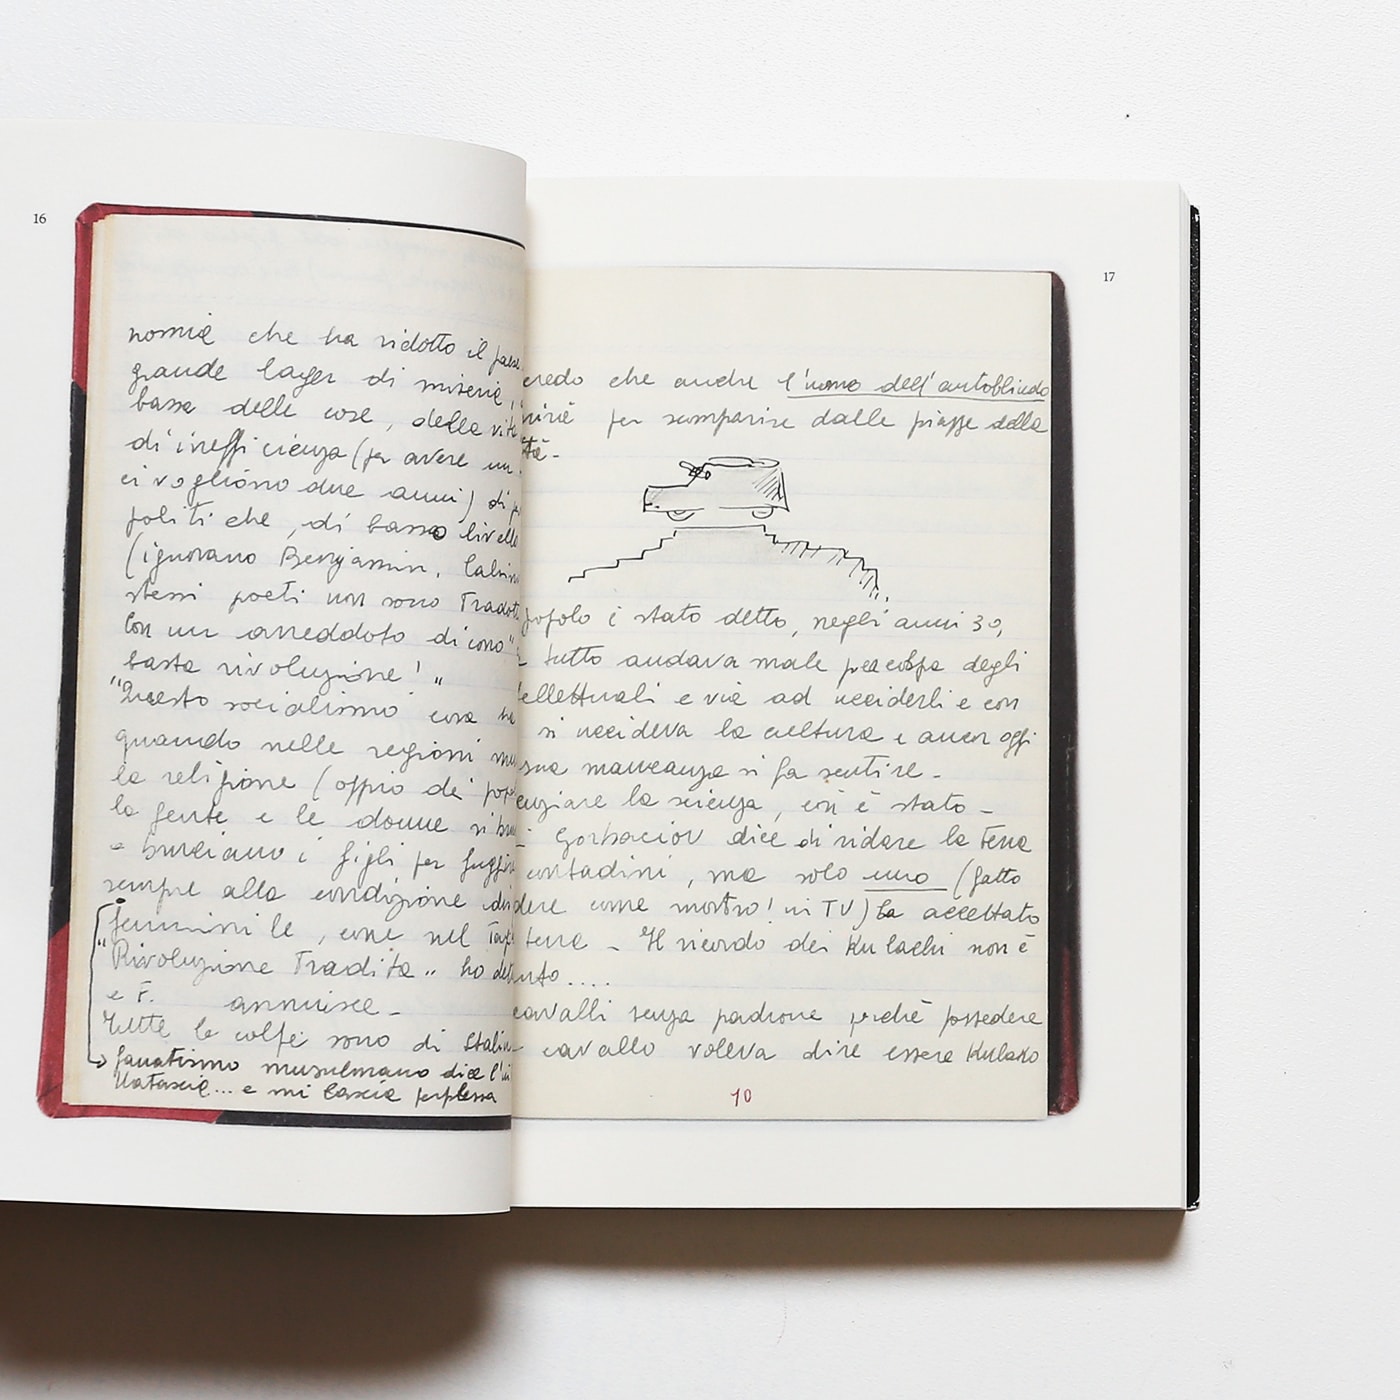 16
nomia che ha ridotto il paese
grande lager di miseria,
bassa delle cose, della vita
di inefficienza (per avere un
ci vogliono due anni) di
politiche, di basso livello
(ignorano Benjamin,
stessi poeti non sono Tradotti
Con un aneddoto dicono "
basta rivoluzione! "
"Questo socialismo cosa ha
quando nelle regioni
la religione (oppio dei
la gente e le donne si
bruciano i figli per fuggire
sempre alla condizione
femminile, come nel
"Rivoluzione Tradita" ho
e F. annuisce -
Tutte le colpe sono di Stalin
fanatismo musulmano dice l'
Natascia... e mi lascia perplessa
17
credo che anche l'uomo dell'autoblindo
per scomparire dalle piazze della
popolo è stato detto, negli anni 30,
tutto andava male per colpa degli
e via ad ucciderli e con
si uccideva la cultura e ancor oggi
sua mancanza si fa sentire -
la scienza, così è stato -
Gorbaciov dice di ridare la terra
contadini, ma solo uno (fatto
come mostro! in TV) ha accettato
terra - Il ricordo dei Kulachi non è
....
cavalli senza padrone perché possedere
cavallo voleva dire essere Kulako
10